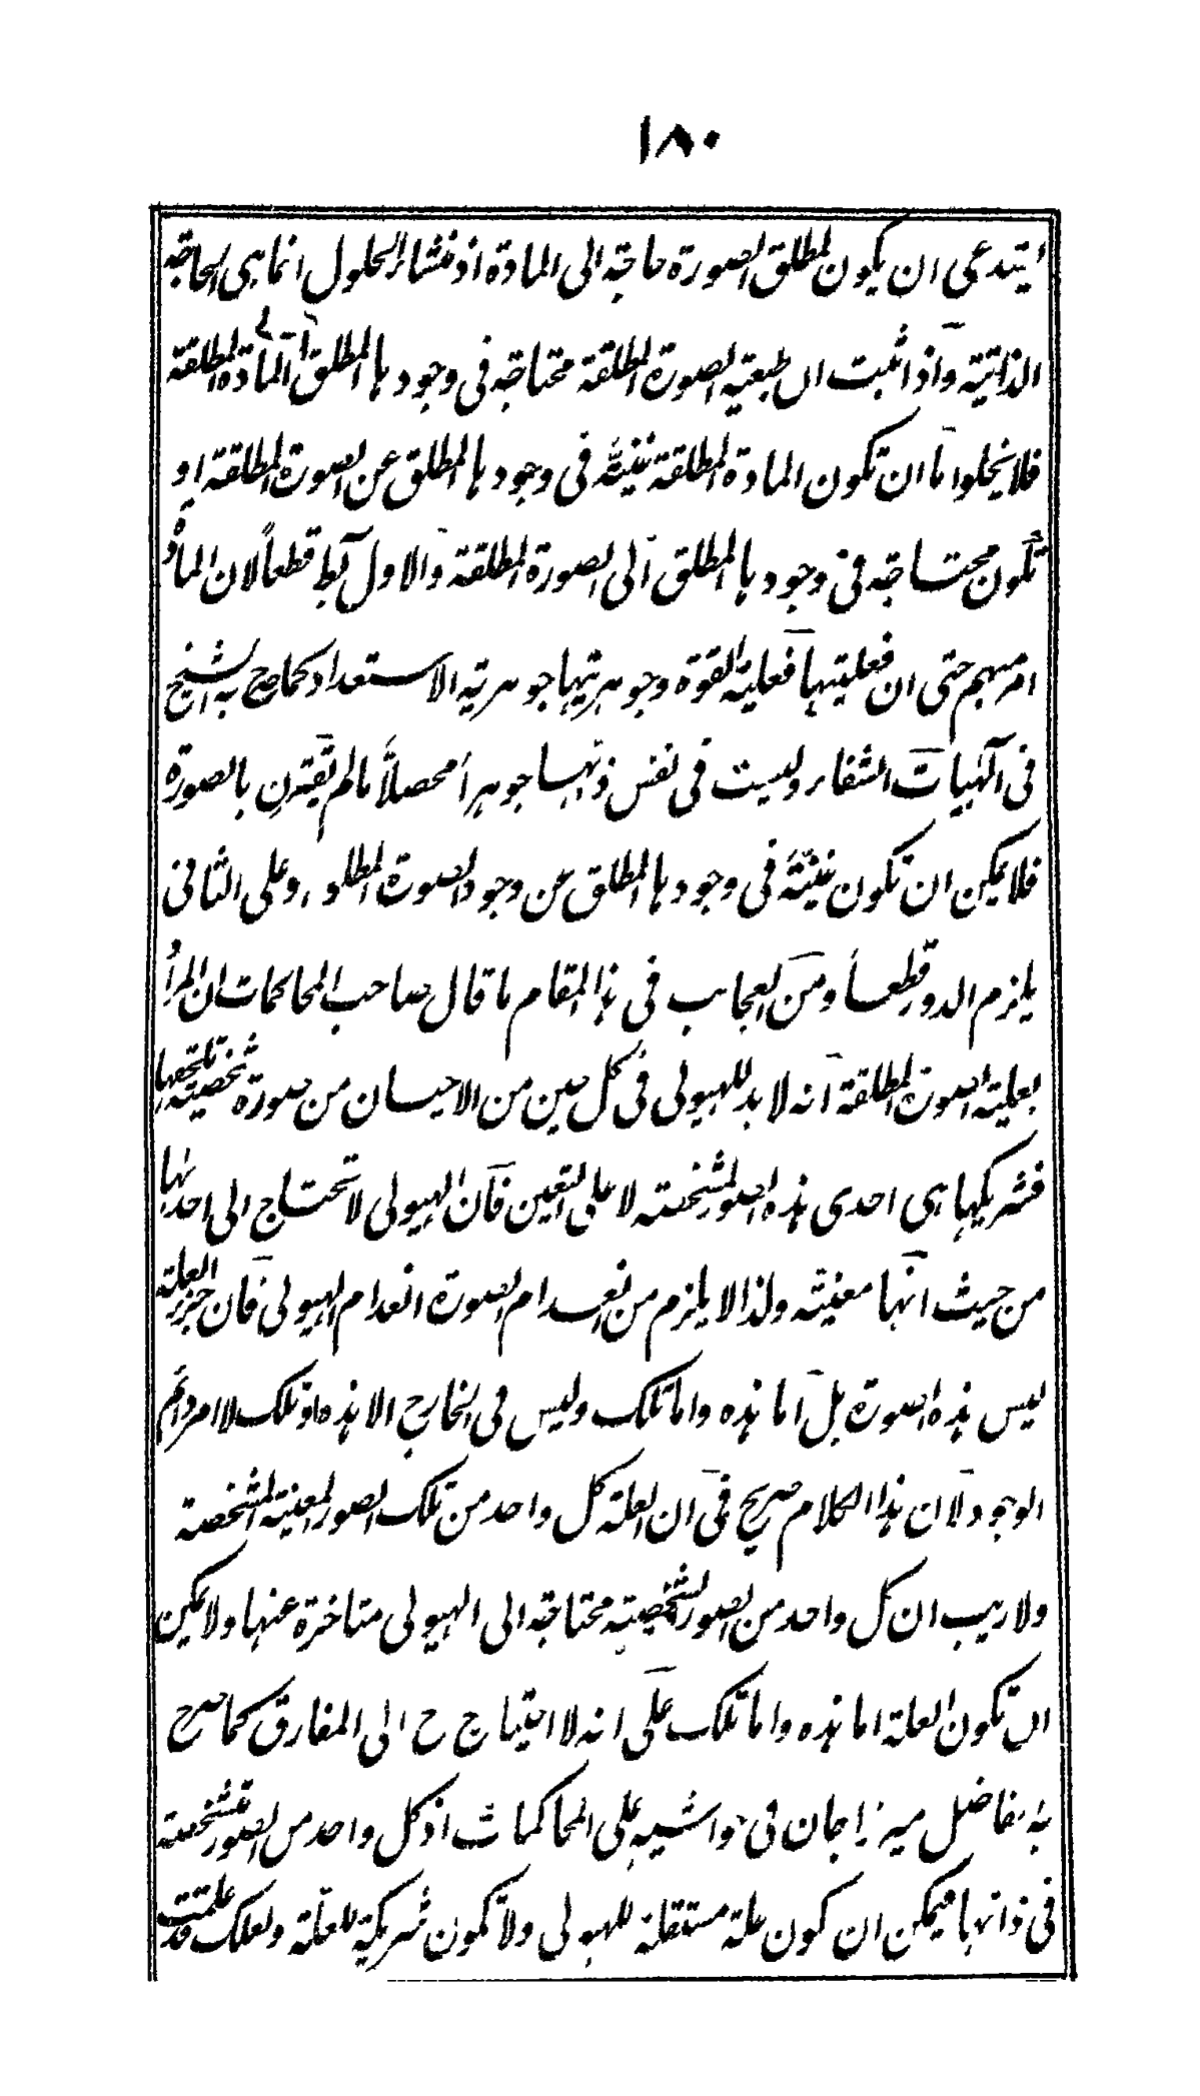 ١٨٠
يستدعى ان يكون لمطلق الصورة حاجة الى المادة اذ منشأ الحلول انما هى الحاجة
الذاتية واذا ثبت ان طبعية الصورة المطلقة محتاجة فى وجودها المطلق الى المادة المطلقة
فلا يخلوا ما ان تكون المادة المطلقة غنيّة فى وجودها المطلق عن الصورة المطلقة او
تكون محتاجة فى وجودها المطلق الى الصورة المطلقة والاول بط قطعاً لان المادة
امر مبهم حتى ان فعليتها فعلية القوة وجوهريتها جوهرية الاستعداد كما صرح به الشيخ
فى الٓهيات الشفاء وليست فى نفس ذاتها جوهراً محصلاً ما لم تقترن بالصورة
فلا يمكن ان تكون غنيّة فى وجودها المطلق عن وجود الصورة المطلقة وعلى الثانى
يلزم الدور قطعاً ومن العجايب فى هذا المقام ما قال صاحب المحاكمات ان المراد
بعلية الصورة المطلقة انه لا بد للهيولى فى كل حين من الاحيان من صورة شخصية تلحقها
فشريكها هى احدى هذه الصور المشخصة لا على التعين فان الهيولى لا تحتاج الى احدٰهما
من حيث انها معينة ولذا لا يلزم من انعدام الصورة انعدام الهيولى فان جزء العلة
ليس هذه الصورة بل اما هذه واما تلك وليس فى الخارج الا هذه او تلك لا امر دائم
الوجود لان هذا الكلام صريح فى ان العلة كل واحد من تلك الصور المعينة المشخصة
ولا ريب ان كل واحد من الصور الشخصية محتاجة الى الهيولى متاخرة عنها ولا يمكن
ان تكون العلة اما هذه واما تلك على انه لا احتياج ح الى المفارق كما صرح
به الفاضل ميرزا جان فى حواشيه على المحاكمات اذ كل واحد من الصور مشخصة
فى ذاتها فيمكن ان تكون علة مستقلة للهيولى ولا تكون شريكة للعلّة ولعلك قد علمت